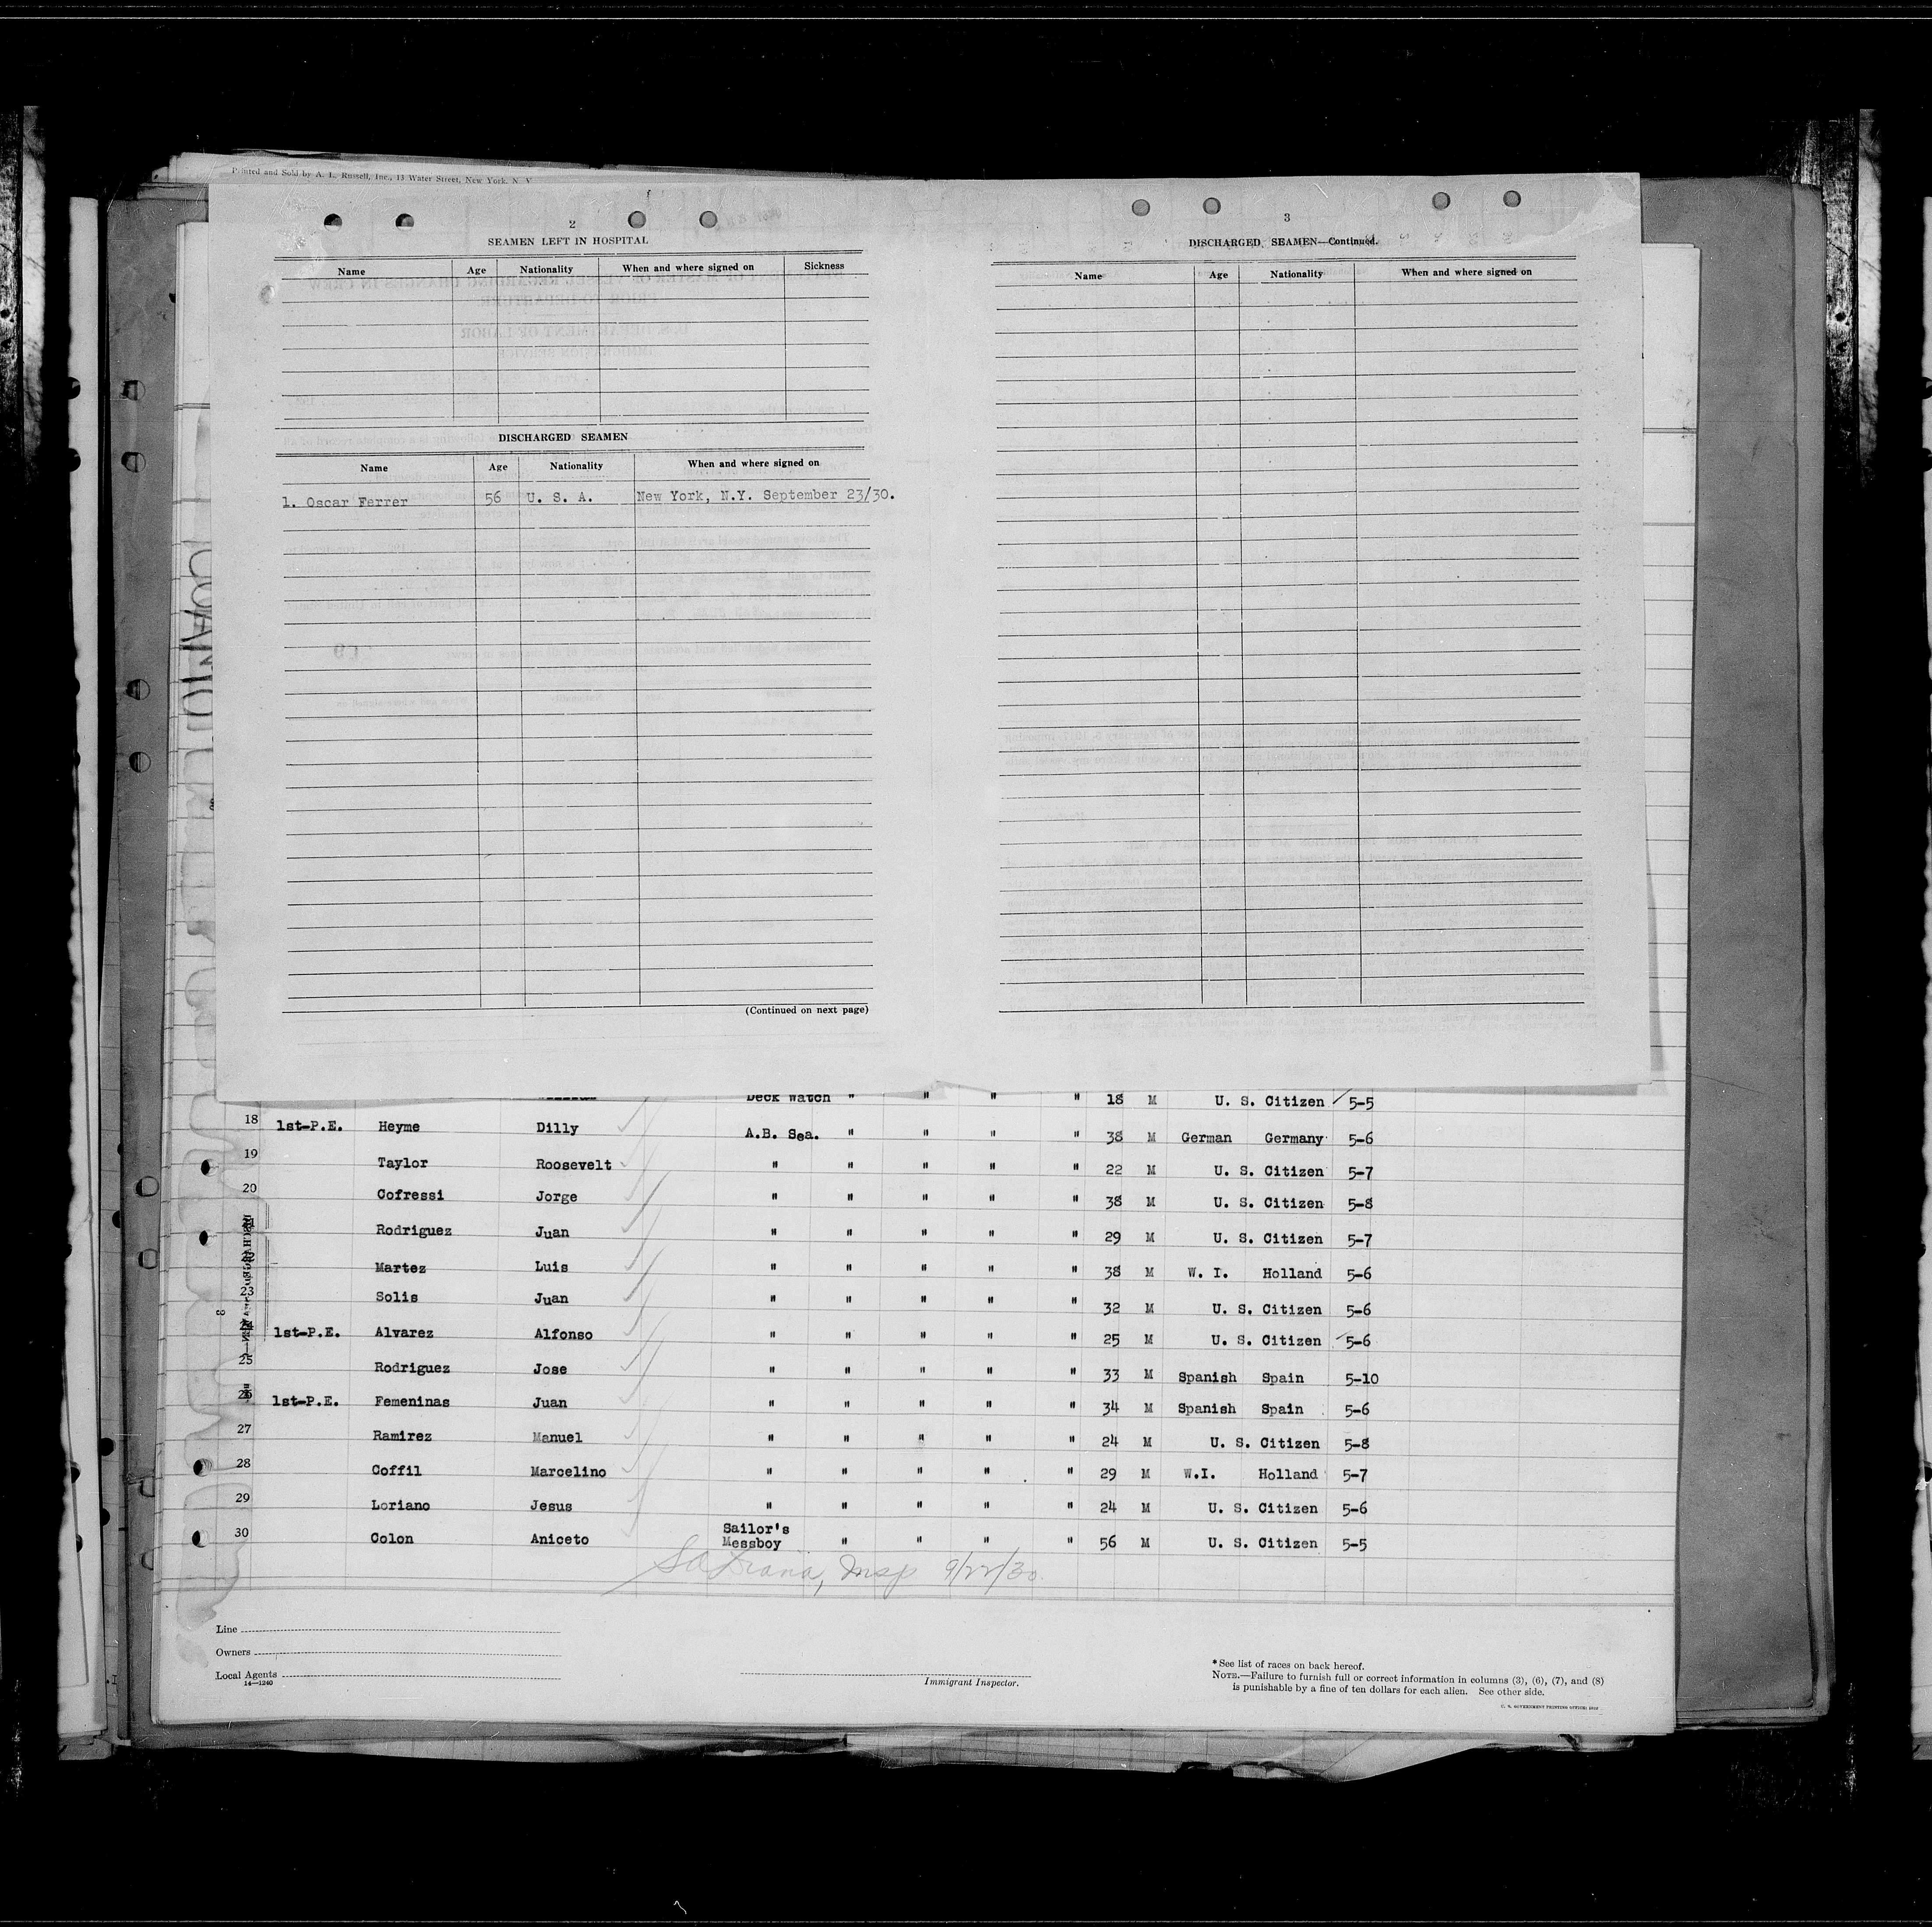 Printed and Sold by A. L. Russell, Inc., 13 Water Street, New York, N. Y
2
SEAMEN LEFT IN HOSPITAL
Name Age Nationality When and where signed on Sickness
DISCHARGED SEAMEN
Name Age Nationality When and where signed on
1. Oscar Ferrer 56 U. S. A. New York, N.Y. September 23/30.
(Continued on next page)
3
DISCHARGED SEAMEN—Continued.
Name Age Nationality When and where signed on
Deck Watch " " " " 18 M U. S. Citizen 5-5
18 1st-P.E. Heyme Dilly A.B. Sea. " " " " 38 M German Germany 5-6
19 Taylor Roosevelt " " " " " 22 M U. S. Citizen 5-7
20 Cofressi Jorge " " " " " 38 M U. S. Citizen 5-8
Rodriguez Juan " " " " " 29 M U. S. Citizen 5-7
Martez Luis " " " " " 38 M W. I. Holland 5-6
23 Solis Juan " " " " " 32 M U. S. Citizen 5-6
24 1st-P.E. Alvarez Alfonso " " " " " 25 M U. S. Citizen 5-6
25 Rodriguez Jose " " " " " 33 M Spanish Spain 5-10
26 1st-P.E. Femeninas Juan " " " " " 34 M Spanish Spain 5-6
27 Ramirez Manuel " " " " " 24 M U. S. Citizen 5-8
28 Coffil Marcelino " " " " " 29 M W.I. Holland 5-7
29 Loriano Jesus " " " " " 24 M U. S. Citizen 5-6
30 Colon Aniceto Sailor's Messboy " " " " 56 M U. S. Citizen 5-5
Insp 9/22/30
Line
Owners
Local Agents
14—1240
Immigrant Inspector.
* See list of races on back hereof.
NOTE.—Failure to furnish full or correct information in columns (3), (6), (7), and (8)
is punishable by a fine of ten dollars for each alien. See other side.